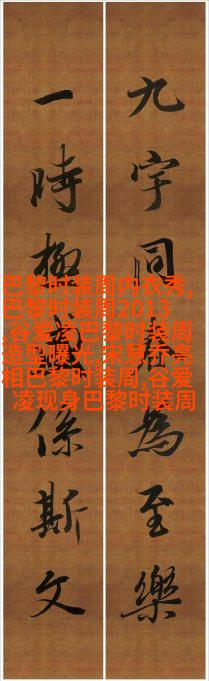 九宇同為至樂
一時極係斯文
巴黎时装周内衣秀,
巴黎时装周2013
,谷爱凌巴黎时装周
造型曝光,宋慧乔亮
相巴黎时装周,谷爱
凌现身巴黎时装周